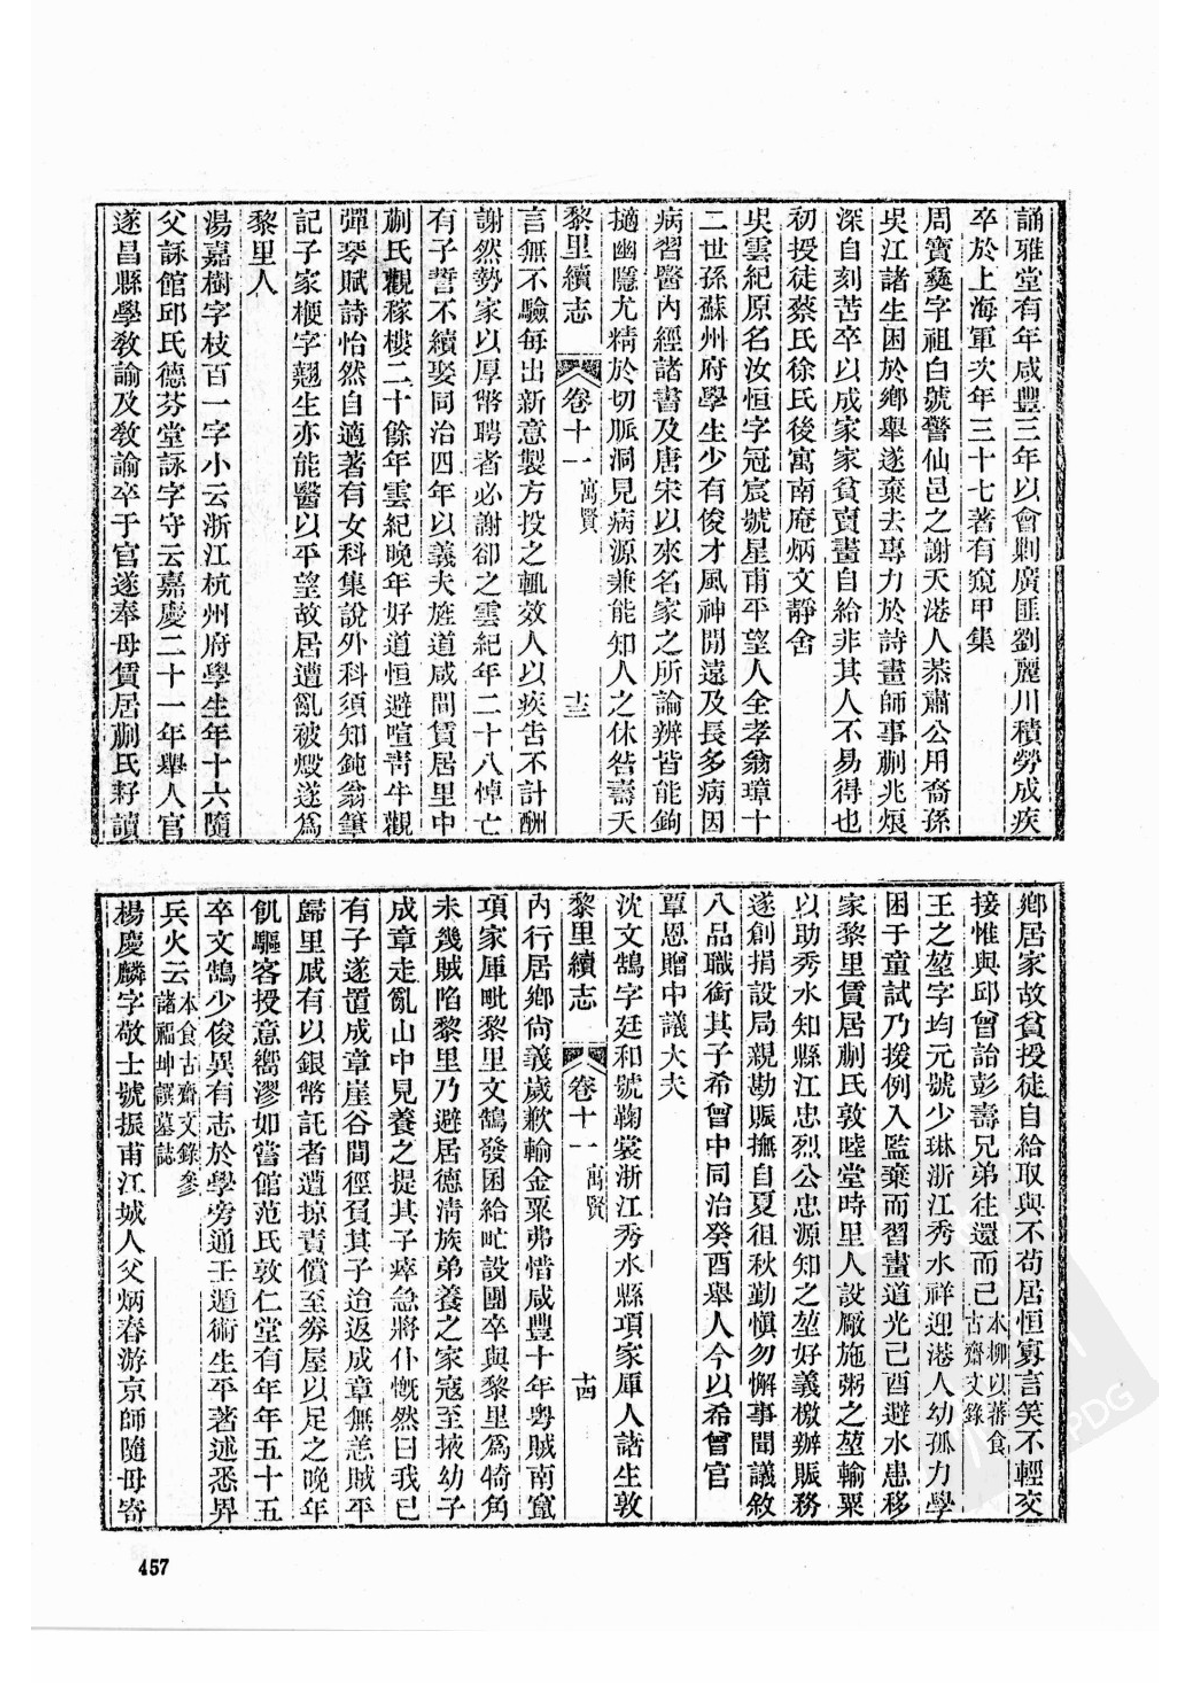 誦雅堂有年咸豐三年以會剿廣匪劉麗川積勞成疾
卒於上海軍次年三十七著有窺甲集
周寶彝字祖白號警仙邑之謝天港人恭肅公用裔孫
吳江諸生困於鄉舉遂棄去專力於詩畫師事蒯兆烺
深自刻苦卒以成家家貧賣畫自給非其人不易得也
初授徒蔡氏徐氏後寓南庵炳文靜舍
吳雲紀原名汝恒字冠宸號星甫平望人全孝翁璋十
二世孫蘇州府學生少有俊才風神閒遠及長多病因
病習醫內經諸書及唐宋以來名家之所論辨皆能鉤
擿幽隱尤精於切脈洞見病源兼能知人之休咎壽夭
黎里續志 卷十一 寓賢 十三
言無不驗每出新意製方投之輒效人以疾告不計酬
謝然勢家以厚幣聘者必謝卻之雲紀年二十八悼亡
有子誓不續娶同治四年以義夫旌道咸間賃居里中
蒯氏觀稼樓二十餘年雲紀晚年好道恒避喧靑牛觀
彈琴賦詩怡然自適著有女科集說外科須知鈍翁筆
記子家梗字翹生亦能醫以平望故居遭亂被燬遂爲
黎里人
湯嘉樹字枝百一字小云浙江杭州府學生年十六隨
父詠館邱氏德芬堂詠字守云嘉慶二十一年舉人官
遂昌縣學敎諭及敎諭卒于官遂奉母賃居蒯氏耔讀
鄕居家故貧授徒自給取與不苟居恒寡言笑不輕交
接惟與邱曾詒彭壽兄弟往還而已本柳以蕃食古齋文錄
王之堃字均元號少琳浙江秀水祥迎港人幼孤力學
困于童試乃援例入監棄而習畫道光己酉避水患移
家黎里賃居蒯氏敦睦堂時里人設厰施粥之堃輸粟
以助秀水知縣江忠烈公忠源知之堃好義檄辦賑務
遂創捐設局親勘賑撫自夏徂秋勤愼勿懈事聞議敘
八品職銜其子希曾中同治癸酉舉人今以希曾官
覃恩贈中議大夫
沈文鵠字廷和號鞠裳浙江秀水縣項家厙人諸生敦
黎里續志 卷十一 寓賢 十四
內行居鄕尙義歲歉輸金粟弗惜咸豐十年粤賊南竄
項家厙毗黎里文鵠發囷給畝設團卒與黎里爲犄角
未幾賊陷黎里乃避居德清族弟養之家寇至掖幼子
成章走亂山中見養之提其子瘁急將仆慨然曰我已
有子遂置成章崖谷間徑負其子迨返成章無恙賊平
歸里戚有以銀幣託者遭掠責償至劵屋以足之晚年
飢驅客授意嚮漻如嘗館范氏敦仁堂有年年五十五
卒文鵠少俊異有志於學旁通壬遁術生平著述悉畀
兵火云本食古齋文錄參諸福坤譔墓誌
楊慶麟字敬士號振甫江城人父炳春游京師隨母寄
457